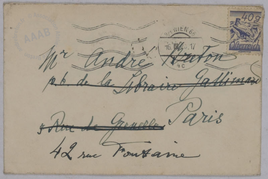 AAAB
WIEN
40g
Mr André Breton
p.b. de la Librairie Gallimard
3 Rue de Grenelle Paris
42 rue Fontaine